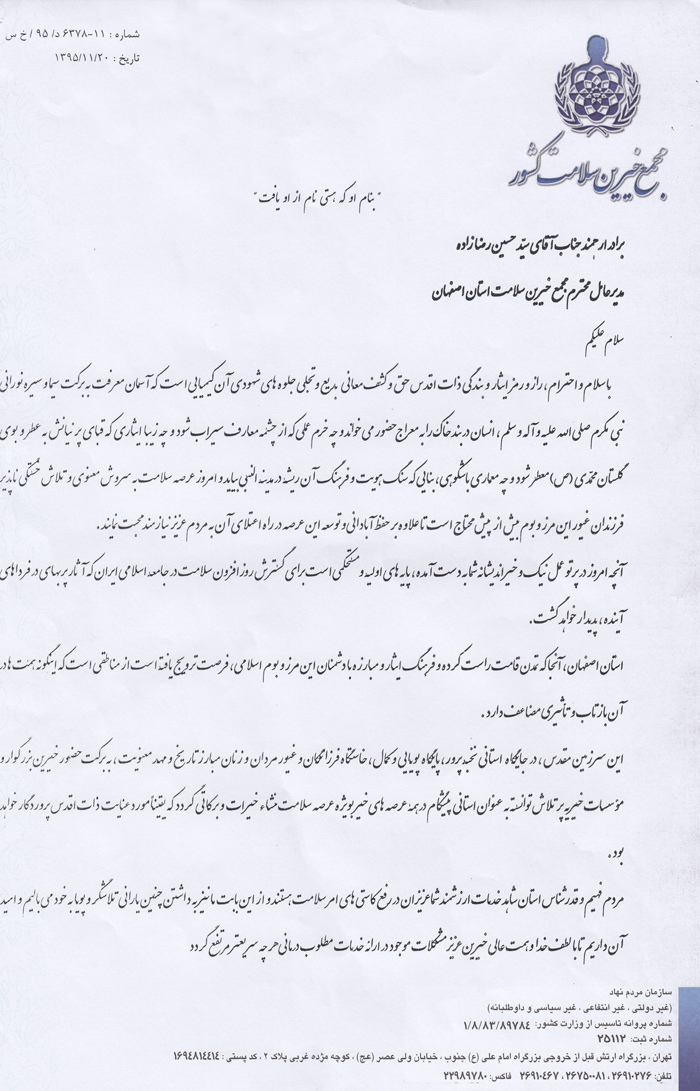 شماره : ۱۱-۶۳۷۸ د/ ۹۵ / خ س
تاریخ : ۱۳۹۵/۱۱/۲۰
مجمع خیرین سلامت کشور
"بنام او که هستی نام از او یافت"
برادر ارجمند جناب آقای سیّد حسین رضازاده
مدیر عامل محترم مجمع خیرین سلامت استان اصفهان
سلام علیکم
باسلام و احترام، راز و رمز ایثار و بندگی ذات اقدس حق و کشف معانی بدیع و تجلی جلوه های شهودی آن کیمیایی است که آسمان معرفت به برکت سیما و سیره نورانی
نبی مکرم صلی الله علیه و آله و سلم، انسان در بند خاک را به معراج حضور می خواند و چه خرم علمی که از چشمه معارف سیراب شود و چه زیبا ایثاری که قبای پرنیانش به عطر و بوی
گلستان محمدی (ص) معطر شود و چه معماری باشکوهی، بنایی که سنگ هویت و فرهنگ آن ریشه در مدینه النبی بیابد و امروز عرصه سلامت به سروش معنوی و تلاش خستگی ناپذیر
فرزندان غیور این مرز و بوم بیش از پیش محتاج است تا علاوه بر حفظ آبادانی و توسعه این عرصه در راه اعتلای آن به مردم عزیز نیازمند محبت نمایند.
آنچه امروز در پرتو عمل نیک و خیراندیشانه شما به دست آمده، پایه های اولیه و مستحکمی است برای گسترش روز افزون سلامت در جامعه اسلامی ایران که آثار پربهای در فردا های
آینده، پدیدار خواهد گشت.
استان اصفهان، آنجا که تمدن قامت راست کرده و فرهنگ ایثار و مبارزه با دشمنان این مرز و بوم اسلامی، فرصت ترویج یافته است از مناطقی است که اینگونه همت ها در
آن بازتاب و تأثیری مضاعف دارد.
این سرزمین مقدس، در جایگاه استانی نخبه پرور، پایگاه پویایی و کمال، خاستگاه فرزانگان و غیور مردان و زنان مبارز تاریخ و مهد معنویت، به برکت حضور خیرین بزرگوار و
مؤسسات خیریه پرتلاش توانسته به عنوان استانی پیشگام در همه عرصه های خیر بویژه عرصه سلامت منشاء خیرات و برکاتی گردد که یقیناً مورد عنایت ذات اقدس پروردگار خواهد
بود.
مردم فهیم و قدرشناس استان شاهد خدمات ارزشمند شما عزیزان در رفع کاستی های امر سلامت هستند و از این بابت ما نیز به داشتن چنین یارانی تلاشگر و پویا به خود می بالیم و امید
آن داریم تا با لطف خدا و همت عالی خیرین عزیز مشکلات موجود در ارائه خدمات مطلوب درمانی هر چه سریعتر مرتفع گردد
سازمان مردم نهاد
(غیر دولتی ، غیر انتفاعی ، غیر سیاسی و داوطلبانه)
شماره پروانه تاسیس از وزارت کشور: ۱/۸/۸۳/۸۹۷۸۴
شماره ثبت: ۲۵۱۱۲
تهران ، بزرگراه ارتش قبل از خروجی بزرگراه امام علی (ع) جنوب ، خیابان ولی عصر (عج) ، کوچه مژده غربی پلاک ۲ ، کد پستی : ۱۶۹۴۸۱۴۴۱۴
تلفن: ۲۶۹۱۰۲۷۶ ، ۲۶۷۵۰۰۸۱ ، ۲۶۹۱۰۴۶۷ فاکس: ۲۲۹۸۹۷۸۰